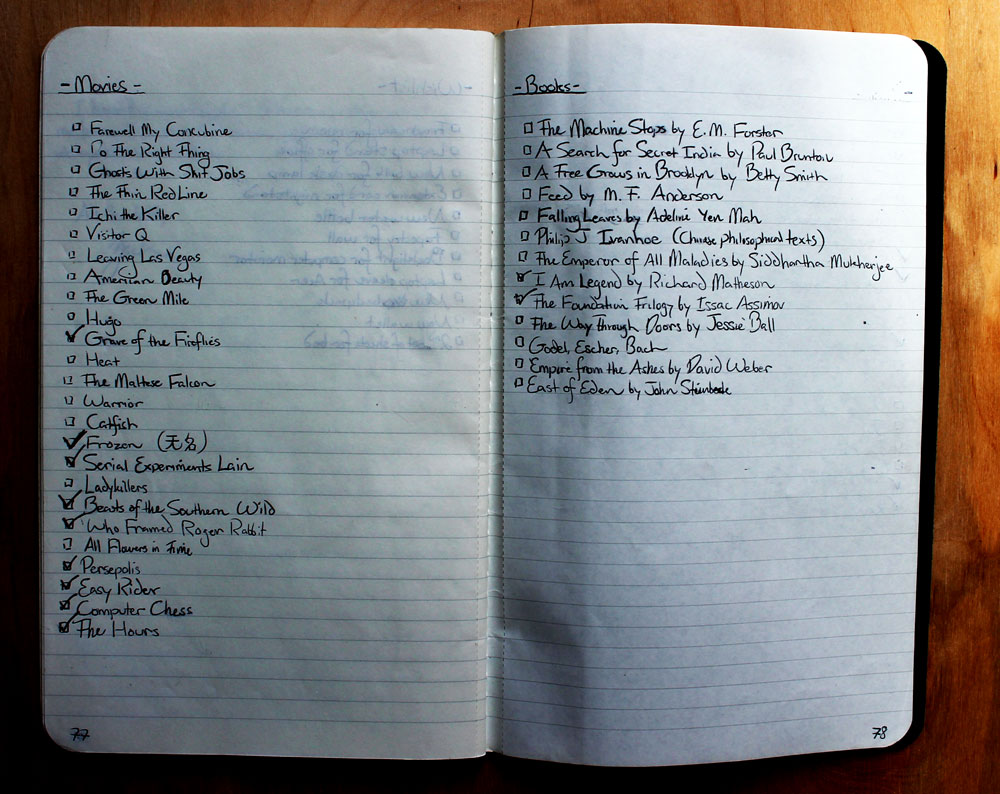 - Movies -
Farewell My Concubine
Do The Right Thing
Ghosts With Shit Jobs
The Thin Red Line
Ichi the Killer
Visitor Q
Leaving Las Vegas
American Beauty
The Green Mile
Hugo
Grave of the Fireflies
Heat
The Maltese Falcon
Warrior
Catfish
Frozen (无名)
Serial Experiments Lain
Ladykillers
Beasts of the Southern Wild
Who Framed Roger Rabbit
All Flowers in Time
Persepolis
Easy Rider
Computer Chess
The Hours
77
- Books -
The Machine Stops by E.M. Forster
A Search for Secret India by Paul Brunton
A Tree Grows in Brooklyn by Betty Smith
Feed by M. F. Anderson
Falling Leaves by Adeline Yen Mah
Philip J Ivanhoe (Chinese philosophical texts)
The Emperor of All Maladies by Siddhartha Mukherjee
I Am Legend by Richard Matheson
The Foundation Trilogy by Issac Assimov
The Way Through Doors by Jessie Ball
Godel, Escher, Bach
Empire from the Ashes by David Weber
East of Eden by John Steinbeck
78